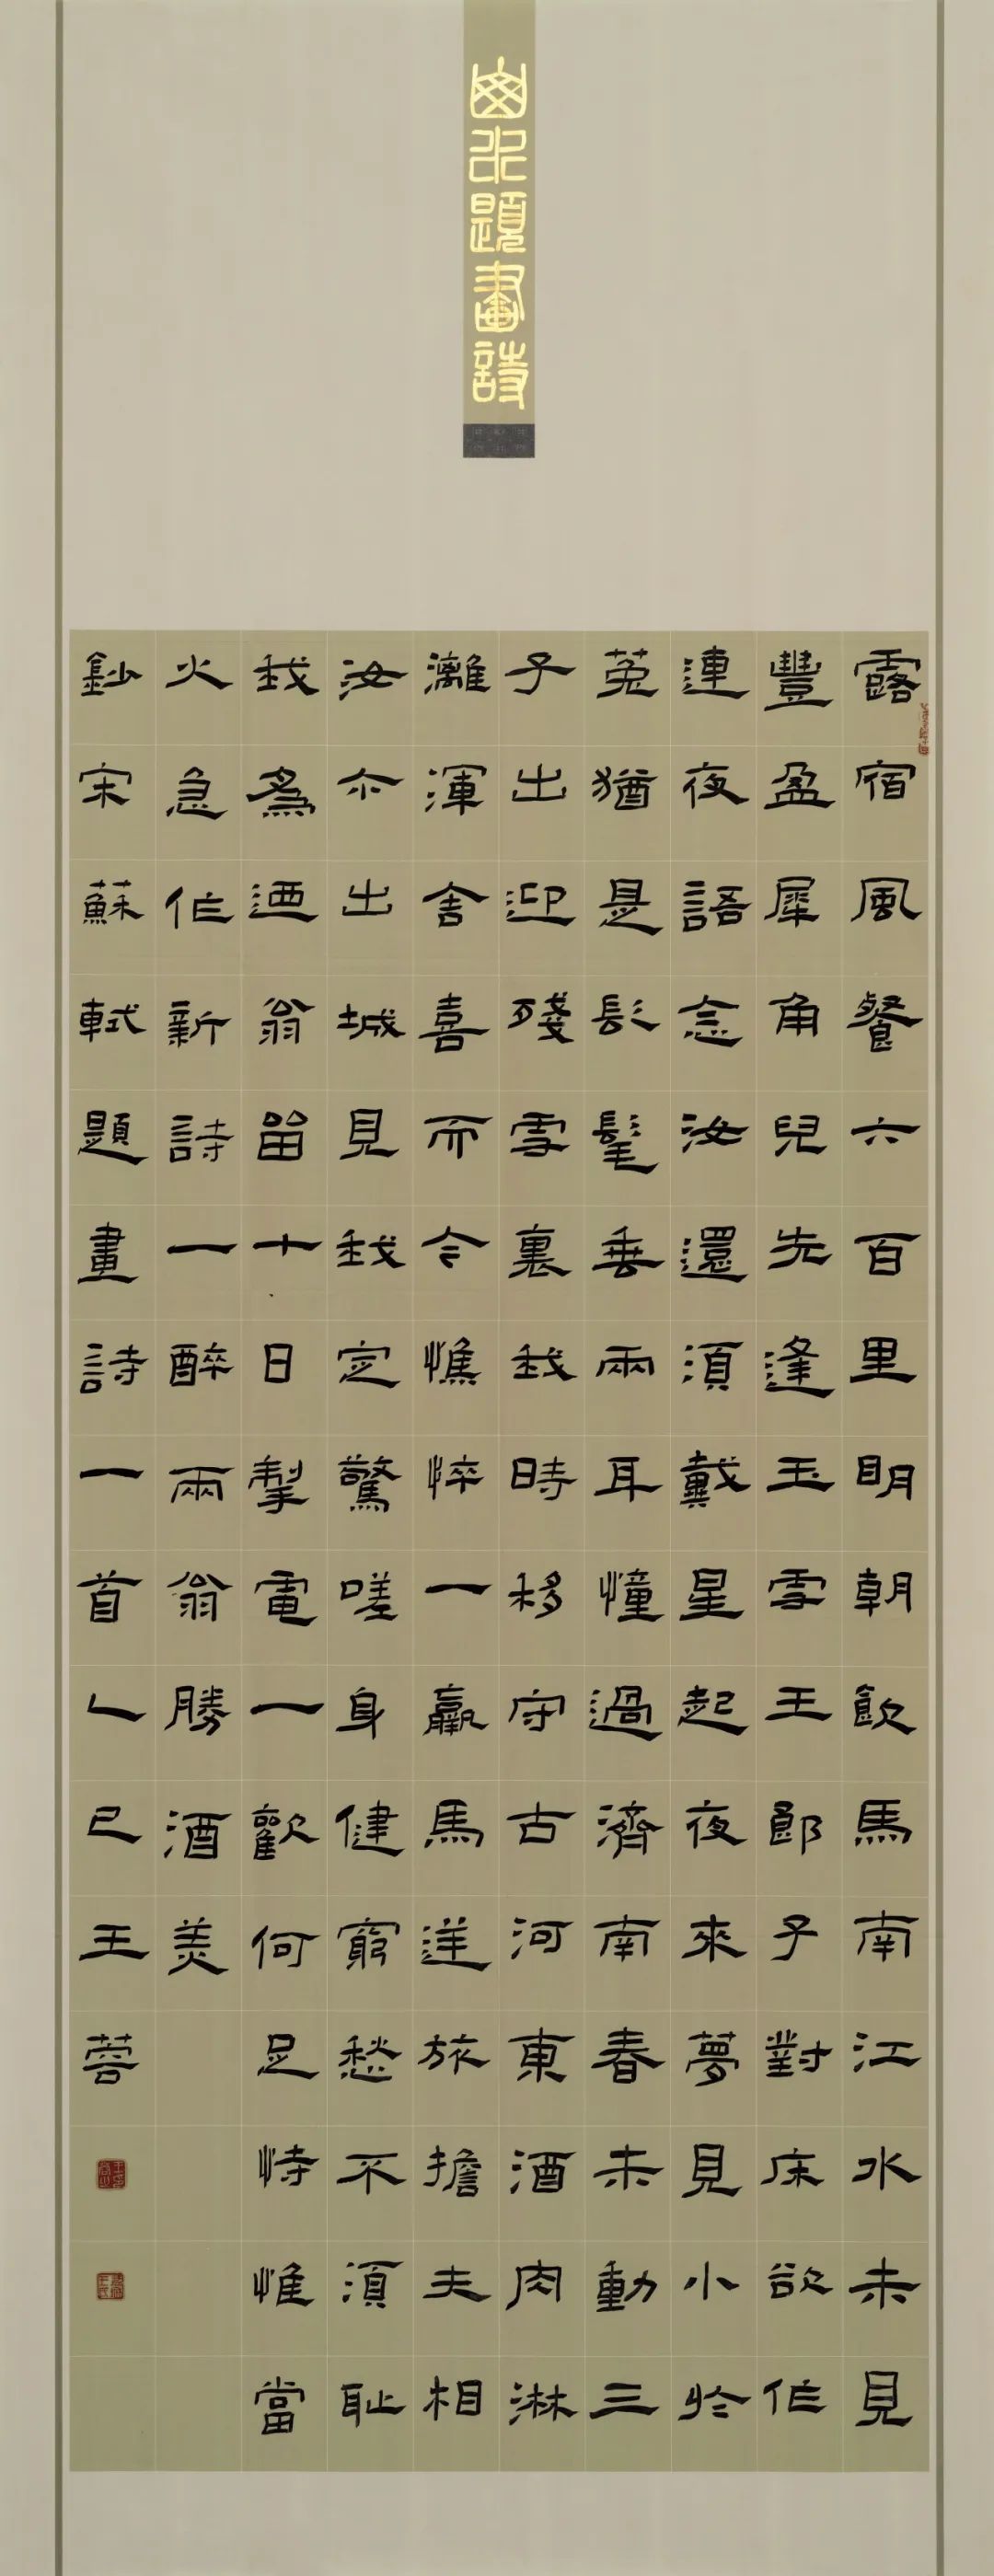 水題畫詩
露宿風餐六百里眀朝飲馬南江水未見
豐盈犀角兒先逢玉雪王郎子對床欲作
連夜語念汝還須戴星起夜來夢見小於
菟猶是髧髦垂兩耳憧過濟南春未動三
子出迎殘雪裏我時移守古河東酒肉淋
灕渾舍喜而今憔悴一羸馬逆旅擔夫相
汝尒出城見我定驚嗟身健窮愁不須耻
我為迺翁畱十日掣電一歡何足恃惟當
火急作新詩一醉兩翁勝酒美
鈔宋蘇軾題畫詩一首乙巳王蓉